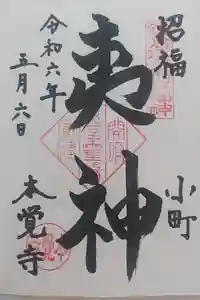 招福
夷神
小町
本覚寺
令和六年
五月六日